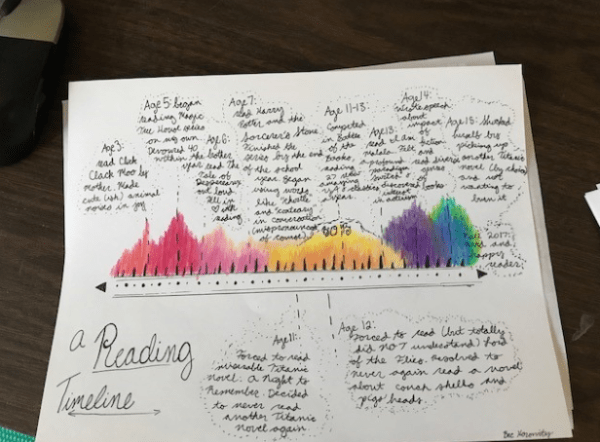 Age 3:
read Click
Clack Moo by
mother. Made
cute (ish) animal
noises in joy
Age 5: began
reading Magic
Tree House series
on my own.
Devoured 40
within the
Age 6:
read The
Tale of
Despereaux
out loud.
Fell in
love with
reading
Age 7:
read Harry
Potter and the
Sorcerer's Stone.
Finished the
series by the end
of the school
year. Began
using words
like
and
in conversation
(mispronounced
of course)
Age 11-13:
Competed
in Battle
of the
Books,
reading
27
amazing
books
years.
Age 13:
read I Am
Malala. Felt
a profound
paradigm
discovered
interest
in activism
Age 14:
speech
about
impact
of
fiction
and
read diverse
genres
of
books
Age 15: Shocked
herself by
picking up
another Titanic
novel (by choice)
and not
wanting to
burn it.
Fall 2017:
and
happy
reader
a Reading
Timeline
Age 11:
Forced to read
miserable Titanic
novel, A Night to
Remember. Decided
to never read
another Titanic
novel again
Age 12:
Forced to read (but totally
did NOT understand) Lord
of the Flies. Resolved to
never again read a novel
about conch shells and
pigs' heads.
Bee Horowitz